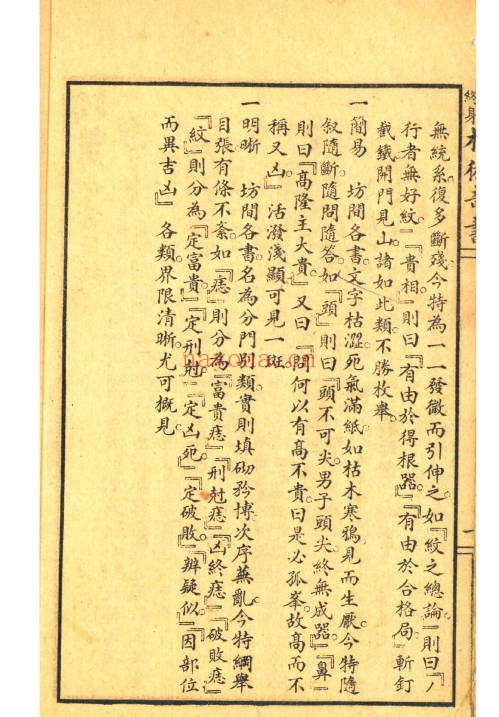 無統系復多斷殘。今特為一一發微而引伸之。如『紋之總論』則曰『八
行者無好紋』『貴相』則曰『有由於得根器』『有由於合格局』斬釘
截鐵開門見山。諸如此類不勝枚舉。
一簡易　坊間各書。文字枯澀。死氣滿紙。如枯木寒鴉。見而生厭。今特隨
叙隨斷。隨問隨答。如『頭』則曰『頭不可尖。男子頭尖。終無成器。』『鼻』
則曰『高隆主大貴』又曰『問何以有高不貴。曰是必孤峯。故高而不
稱又凶』活潑淺顯。可見一斑
一明晰　坊間各書。名為分門別類。實則填砌矜博。次序蕪亂。今特綱舉
目張。有條不紊。如『痣』則分為『富貴痣』『刑尅痣』『凶終痣』『破敗痣』
『紋』則分為『定富貴』『定刑尅』『定凶死』『定破敗』『辨疑似』『因部位
而異吉凶』各類。界限清晰。尤可概見
nayona.cn